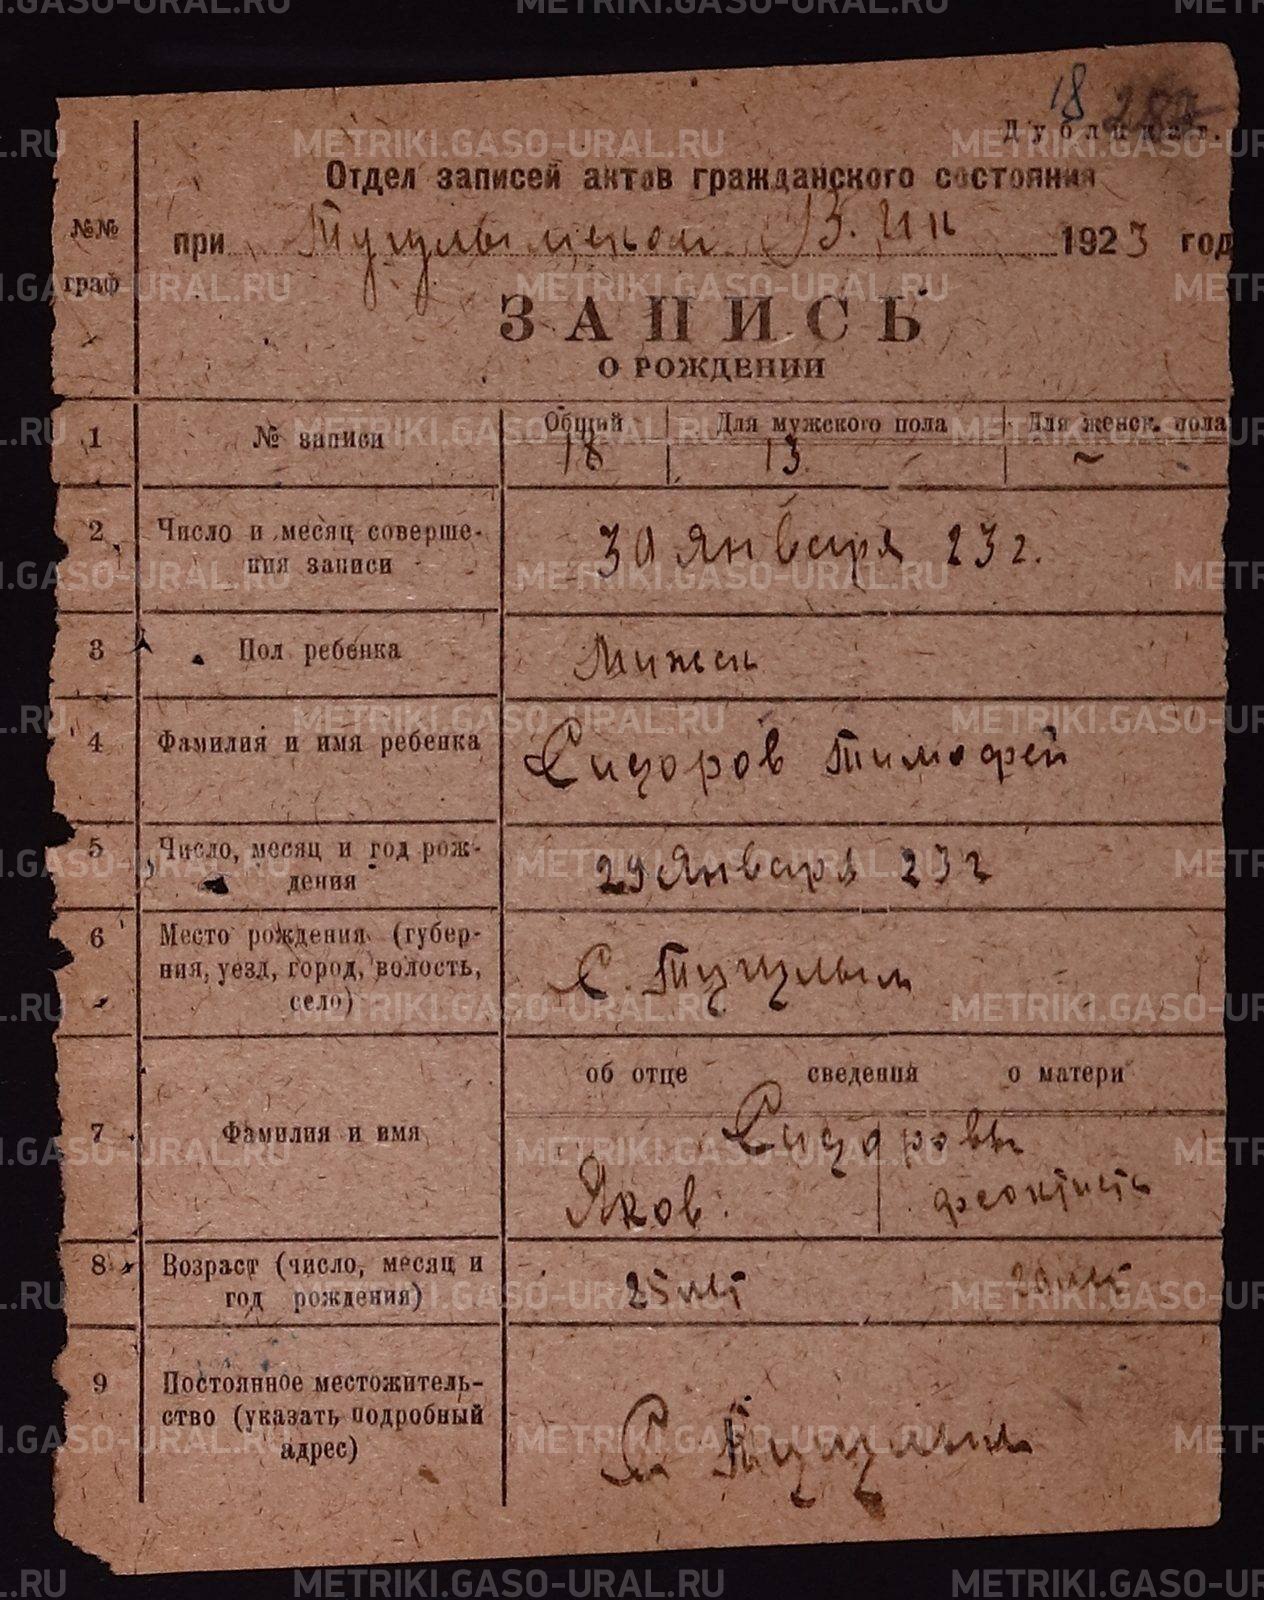 18 287
Дубликат.
Отдел записей актов гражданского состояния
при Тугулымском В. Ик 1923 год
№№ граф
ЗАПИСЬ
О РОЖДЕНИИ
1 № записи Общий Для мужского пола Для женск. пола
18 13 ~
2 Число и месяц соверше-
ния записи
30 Января 23 г.
3 Пол ребенка Мужск
4 Фамилия и имя ребенка Сидоров Тимофей
5 Число, месяц и год рож-
дения
29 Января 23 г
6 Место рождения (губер-
ния, уезд, город, волость,
село)
С. Тугулым
об отце сведения о матери
7 Фамилия и имя Сидоровы
Яков. Феоктиста
8 Возраст (число, месяц и
год рождения)
25 лет 20 лет
9 Постоянное местожитель-
ство (указать подробный
адрес)
С. Тугулым
METRIKI.GASO-URAL.RU